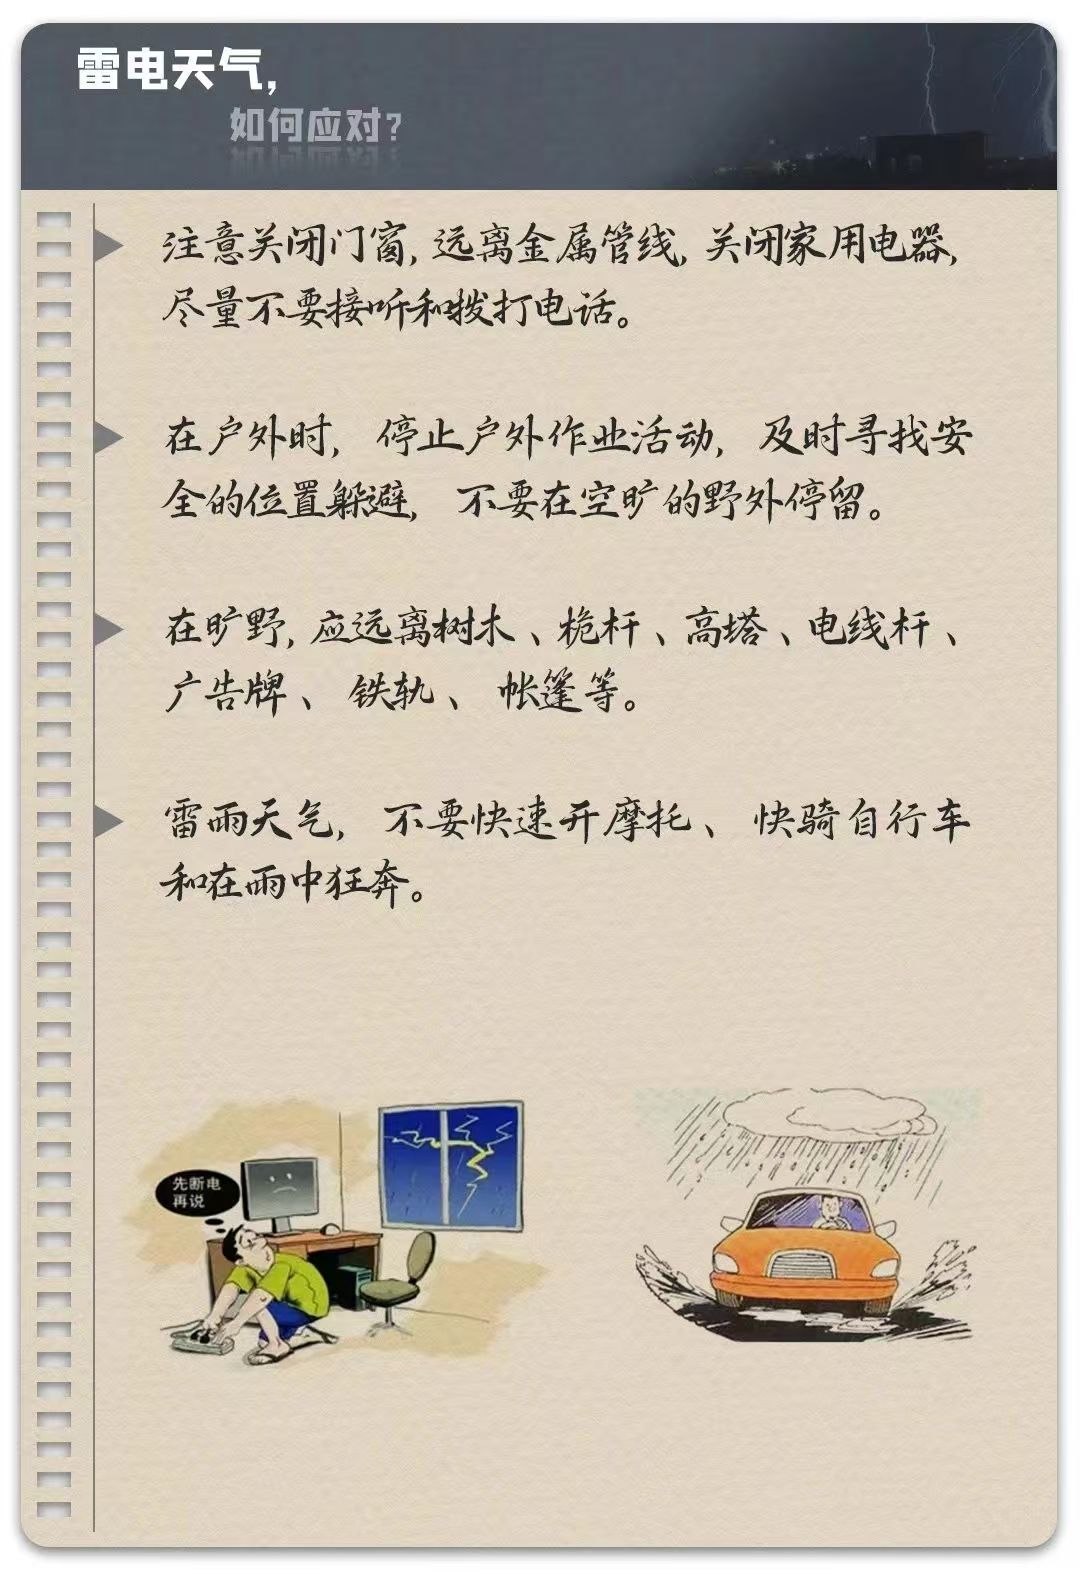 雷电天气，
如何应对？
注意关闭门窗，远离金属管线，关闭家用电器，
尽量不要接听和拨打电话。
在户外时，停止户外作业活动，及时寻找安
全的位置躲避，不要在空旷的野外停留。
在旷野，应远离树木、桅杆、高塔、电线杆、
广告牌、铁轨、帐篷等。
雷雨天气，不要快速开摩托、快骑自行车
和在雨中狂奔。
先断电
再说